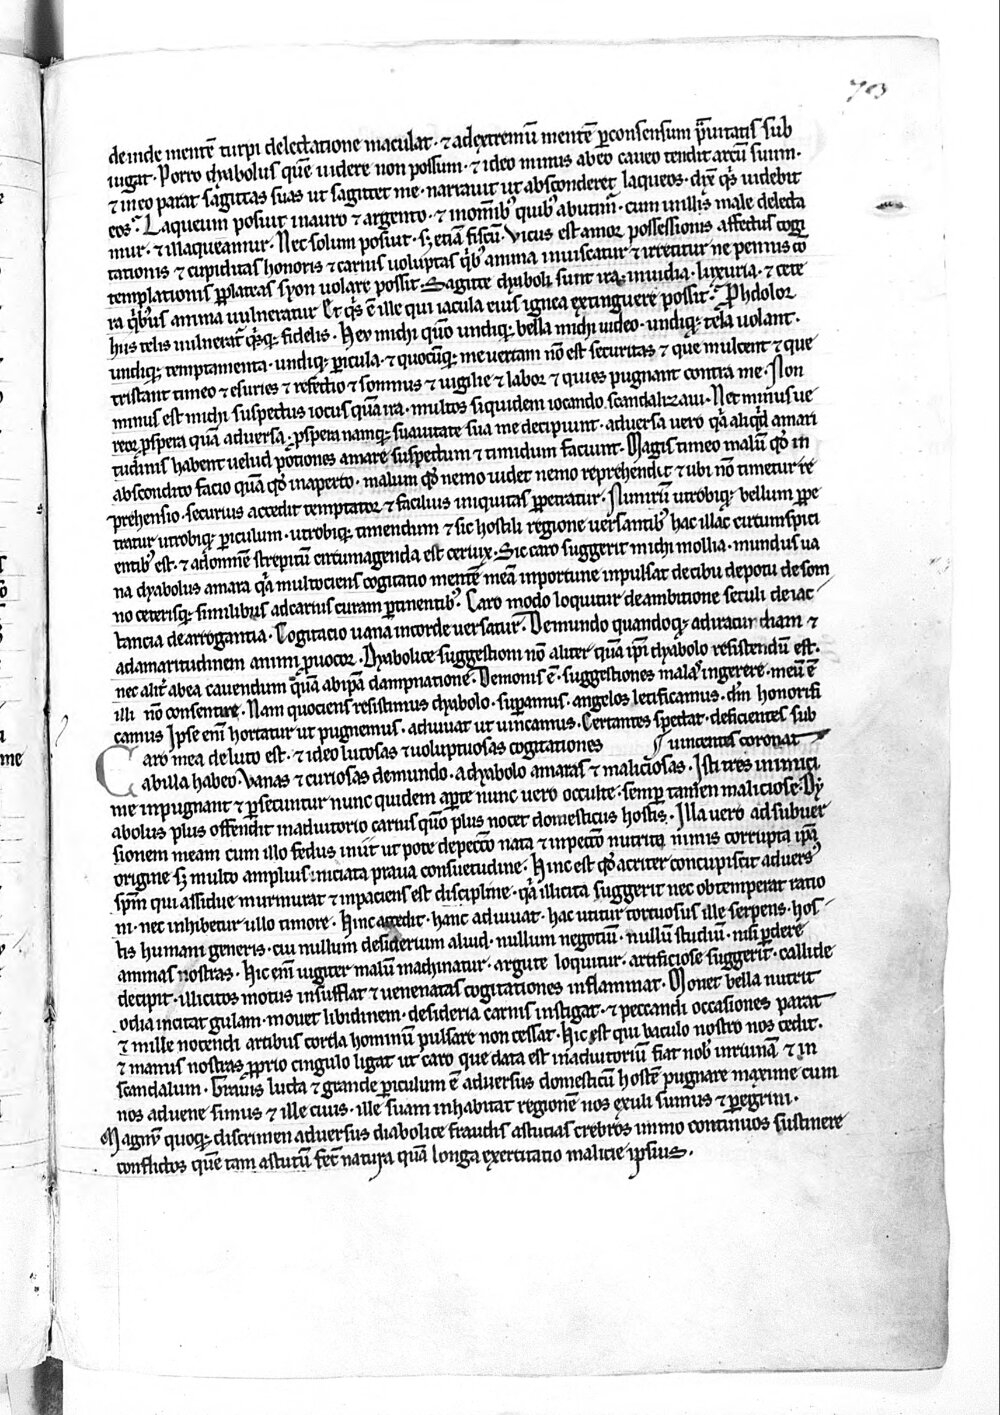 703
deinde mentē turpi delectatione maculat · ⁊ ad extremū mentē ꝑ consensum p̄uitatis sub
iugat · Porro dyabolus quē uidere non possum · ⁊ ideo minus ab eo caueo tendit arcū suum ·
⁊ in eo parat sagittas suas ut sagittet me · narrauit ut absconderet laqueos · dix̄ qͥs uidebit
eos · Laqueum posuit in auro ⁊ argento · ⁊ in om̄ibꝰ quibꝰ abutimͬ · cum in illis male delecta
mur · ⁊ illaqueamur · Nec solum posuit · sꝫ etiā fiscū · Vicus est amor possessionis affectus cog
tationis ⁊ cupiditas honoris ⁊ carius uoluptas qͥbꝰ anima inuiscatur ⁊ irretitur ne pennis cō
templationis ꝑ plateas syon uolare possit · Sagitte dyaboli sunt ira · inuidia · luxuria · ⁊ cete
ra qͥbus anima uulneratur Et qͥs ē ille qui iacula eius ignea extinguere possit · Ph dolor
hiis telis uulneratͬ qͥsqꝫ fidelis · Hev michi quō undiqꝫ bella michi uideo · undiqꝫ tela uolant ·
undiqꝫ temptamenta · undiqꝫ ꝑicula · ⁊ quocūqꝫ me uertam nō est securitas ⁊ que mulcent ⁊ que
tristant timeo ⁊ esuries ⁊ refectio ⁊ somnus ⁊ uigilie ⁊ labor ⁊ quies pugnant contra me · Non
minus est michi suspectus iocus quā ira · multos siquidem iocando scandalizaui · Nec minus ue
reor ꝓspera quā aduersa · ꝓspera namqꝫ suauitate sua me decipiunt · aduersa uero qͥa aliqͥd amari
tudinis habent uelud potiones amare suspectum ⁊ timidum faciunt · Magis timeo malū qͦd in
abscondito facio quā qͦd in aperto · malum qͦd nemo uidet nemo reprehendit ⁊ ubi nō timetur re
prehensio · securius accedit temptator ⁊ facilius iniquitas ꝑpetratur · Nimirū utrobiqꝫ bellum ꝑpe
tratur utrobiqꝫ ꝑiculum · utrobiqꝫ timendum ⁊ sic hostili regione uersantibꝰ hac illac circumspici
entibꝰ est · ⁊ ad omnē strepitū circumagenda est ceruix · Sic caro suggerit michi mollia · mundus ua
na dyabolus amara qͥa multociens cogitatio mentē meā inportune inpulsat de cibu de potu de som
no ceterisqꝫ similibus ad carius curam ꝑtinentibꝰ · Caro modo loquitur de ambitione seculi de iac
tancia de arrogantia · Cogitacio uana in corde uersatur · De mundo quandoqꝫ ad iracundiam ⁊
ad amaritudinem animi ꝓuocor · Dyabolice suggestioni nō aliter quā ipsi dyabolo resistendū est ·
nec alitͬ ab ea cauendum quā ab ipsa dampnatione · Demonis ē · suggestiones malas ingerere · meū ē
illi nō consentire · Nam quociens resistimus dyabolo · suꝑamus · angelos letificamus · dm̄ honorifi
camus Ipse enī hortatur ut pugnemus · adiuuat ut uincamus · Certantes spectat · deficientes sub
Caro mea de luto est · ⁊ ideo lutosas ⁊ uoluptuosas cogitationes uincentes coronat
ab illa habeo · Vanas ⁊ curiosas de mundo · a dyabolo amaras ⁊ maliciosas · Isti tres inimici
me inpugnant ⁊ ꝑsecuntur nunc quidem aꝑte nunc uero occulte · semꝑ tamen maliciose · Dy
abolus plus offendit in adiutorio carius quō plus nocet domesticus hostis · Illa uero ad subuer
sionem meam cum illo fedus iniit ut pote de pecc̄o nata ⁊ in pecc̄o nutrita nimis corrupta ipā
origine sꝫ multo amplius iniciata praua consuetudine · Hinc est qͦd acriter concupiscit aduersꝰ
spm̄ qui assidue murmurat ⁊ inpaciens est discipline · qͥa illicita suggerit nec obtemperat ratio
ni · nec inhibetur ullo timore · Hinc accedit · hanc adiuuat · hac utitur tortuosus ille serpens · hos
tis humani generis · cui nullum desiderium aliud · nullum negotiū · nullū studiū · nisi ꝑdere
animas nostras · Hic enī iugiter malū machinatur · argute loquitur · artificiose suggerit · callide
decipit · illicitos motus insufflat ⁊ uenenatas cogitationes inflammat · Mouet bella nutrit
odia incitat gulam · mouet libidinem · desideria carnis instigat · ⁊ peccandi occasiones parat
⁊ mille nocendi artibus corda hominū pulsare non cessat · Hic est qui baculo nostro nos cedit ·
⁊ manus nostras ꝓprio cingulo ligat ut caro que data est in adiutoriū fiat nobꝰ in ruinā ⁊ in
scandalum · Grauis lucta ⁊ grande ꝑiculum ē aduersus domesticū hostē pugnare maxime cum
nos aduene simus ⁊ ille ciuis · ille suam inhabitat regionē nos exuli sumus ⁊ ꝑegrini ·
Magnū quoqꝫ discrimen aduersus diabolice fraudis astucias crebros immo continuos sustinere
conflictos quē tam astutū fec̄ natura quā longa exercitatio malicie ipsius ·